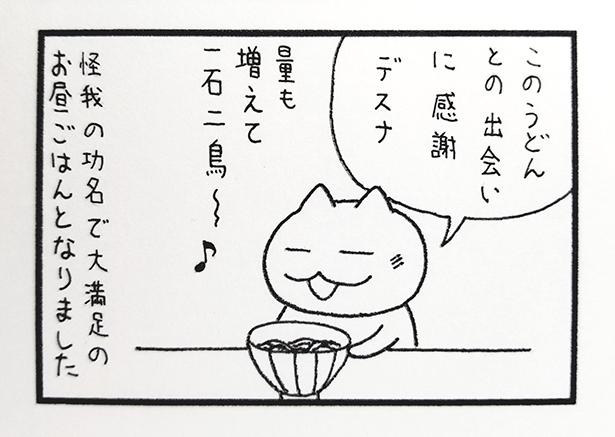 このうどん
との出会い
に感謝
デスナ
量も
増えて
一石二鳥〜♪
怪我の功名で大満足の
お昼ごはんとなりました